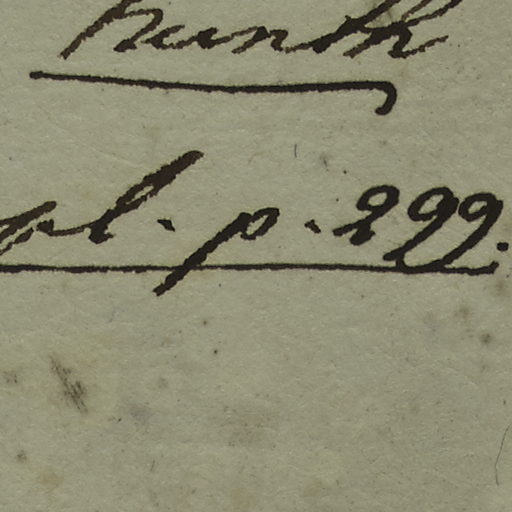 Kunth
pl. p. 299.